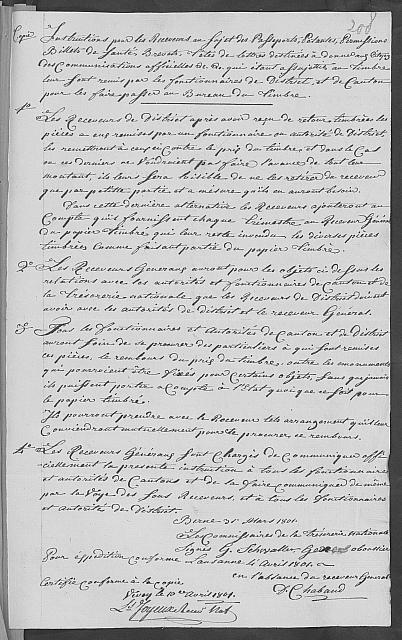 208
Copie
Instructions pour les Receveurs au sujet des Passeports, Patentes, Permissions
Billets de Santés, Brevets, Têtes de lettres destinées à donner aux Citoyens
des Communications officielles &c. &c. qui étant assujettis au timbre
leur sont remis par les fonctionnaires de District et de Canton
pour les faire passer au Bureau du Timbre.
1° Les Receveurs de District après avoir reçu de retour timbrées les
pièces à eux remises par un fonctionnaire ou autorité de District,
les remettront à ceux ci contre le prix du timbre, et dans le Cas
où ces derniers ne voudraient pas faire l'avance de tout le
montant, il leur sera loisible de ne les retirer du receveur
que par petite partie et à mesure qu'ils en auront besoin.
Dans cette dernière alternative les Receveurs ajouteront au
Compte qu'ils fournissent chaque trimestre au Receveur Général
du papier timbré qui leur reste invendu les diverses pièces
timbrées comme faisant partie du papier timbré.
2° Les Receveurs Généraux auront pour les objets ci dessus les
relations avec les autorités et fonctionnaires de Canton et de
la Trésorerie nationale que les Receveurs de District doivent
avoir avec les autorités de district et le receveur General.
3° Tous les fonctionnaires et Autorités de Canton et de District
auront soin de se procurer des particuliers à qui sont remises
ces pièces, le rembours du prix du timbre, outre les émoluments
qui pourroient être fixés pour certains objets, sans que jamais
ils puissent porter à Compte à l'Etat quoi que ce soit pour
le papier timbré.
Ils pourront prendre avec le Receveur tels arrangement qu'il leur
Conviendront mutuellement pour se procurer ce rembours.
4° Les Receveurs Généraux sont Chargés de Communiquer offi-
ciellement la présente instruction à tous les fonctionnaires
et autorités de Cantons et de la faire communiquer de même
par la voye des Sous Receveurs, et à tous les fonctionnaires
et Autorité de District.
Berne 31 Mars 1801.
Le Commissaire de la Trésorerie Nationale
Signés G. Schwaller
Pour expedition conforme Lausanne 4 Avril 1801.
en l'absence du receveur General
Certifié conforme à la copie
D. Chabaud
Vevey le 10 Avril 1801.